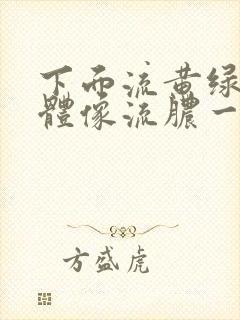 下面流黄绿
體像流膿一
方盛虎